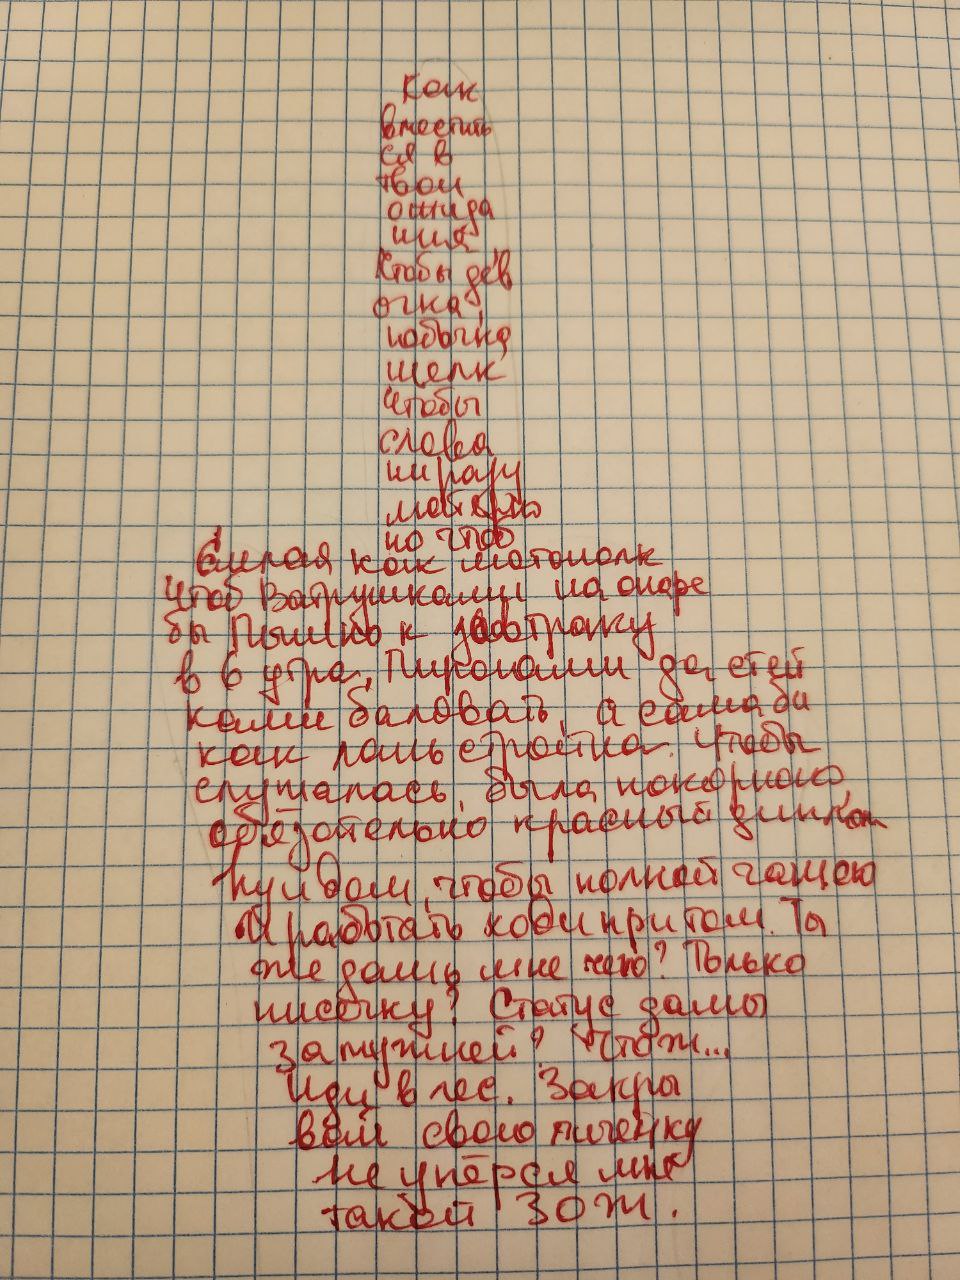 Как
вместить
ся в
твои
ожида
ния
Чтобы дев
очка,
на бочке
щелк
Чтобы
слова
ни разу
но чтоб
Смелая как мотополк
Чтоб Ватрушками на опаре
бы Пышно к завтраку
в 6 утра, Пирогами да стей
ками баловать, а сама бы
как лань стройна. Чтобы
слушалась, была покорною,
обязательно красный диплом
ну и дом, чтобы полной чашею
И работать коли при том. Ты
же дашь мне чего? Только
писечку? Статус дамы
замужней? Чтож...
Иди в лес. Закры
вай свою
не упёрся мне
такой ЗОЖ.